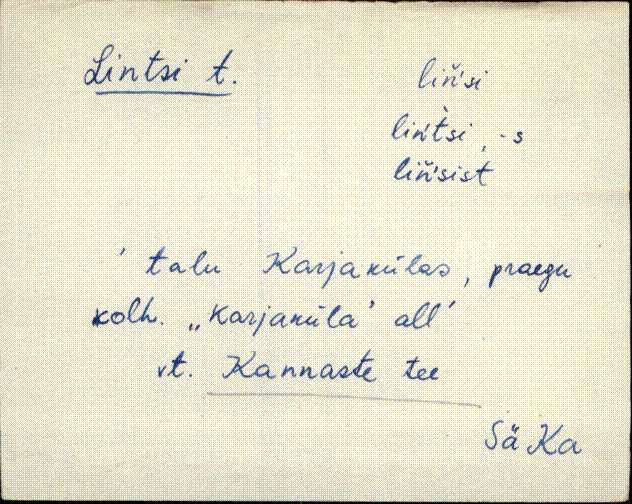 Lintsi t.
liň́si
lin̆t̀si, -s
liň́sist
' talu Karjakülas, praegu
kolh. „Karjaküla" all'
vt. Kannaste tee
Sä Ka